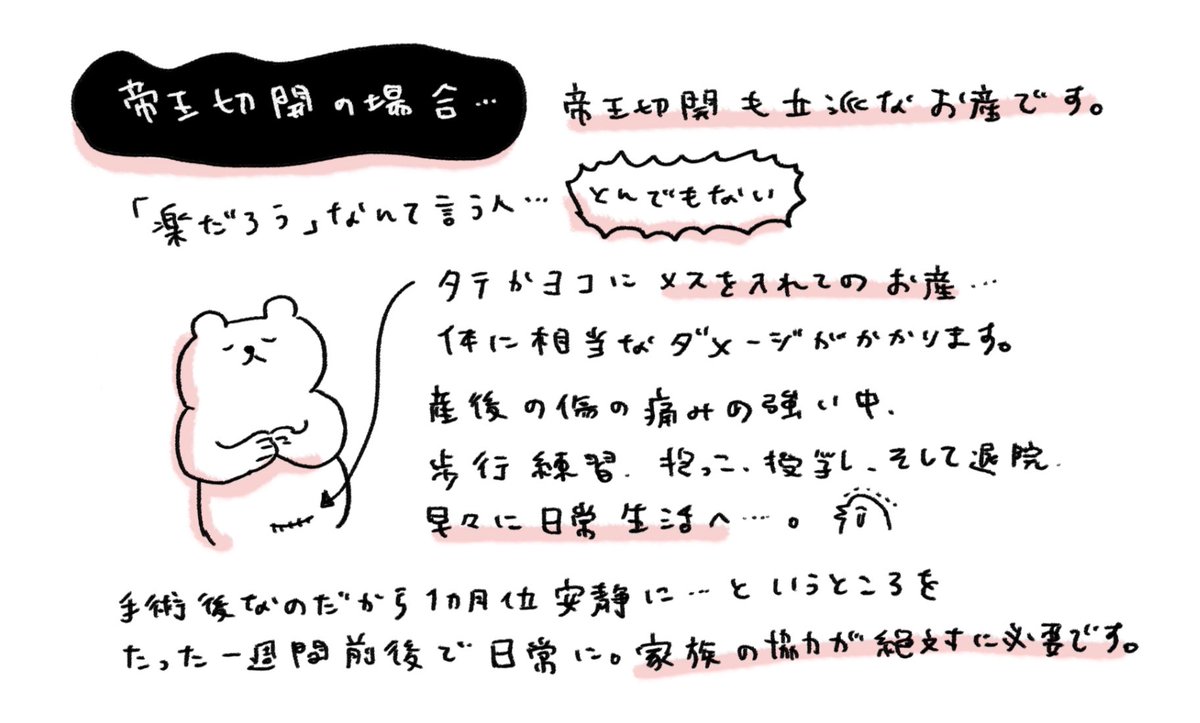 帝王切開の場合…
帝王切開も立派なお産です。
「楽だろう」なんて言う人…
とんでもない
タテかヨコにメスを入れてのお産…
体に相当なダメージがかかります。
産後の傷の痛みの強い中、
歩行練習、抱っこ、授乳し、そして退院、
早々に日常生活へ…。
手術後なのだから1カ月位安静に…というところを
たった一週間前後で日常に。家族の協力が絶対に必要です。